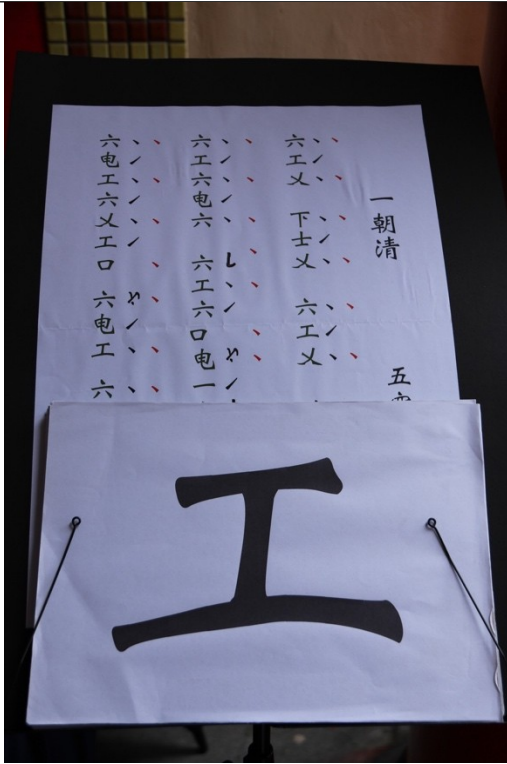 一朝清 五
六工乂 下士乂 六工乂
六工六电六 六工六口电一
六电工六乂工口 六电工 六
工